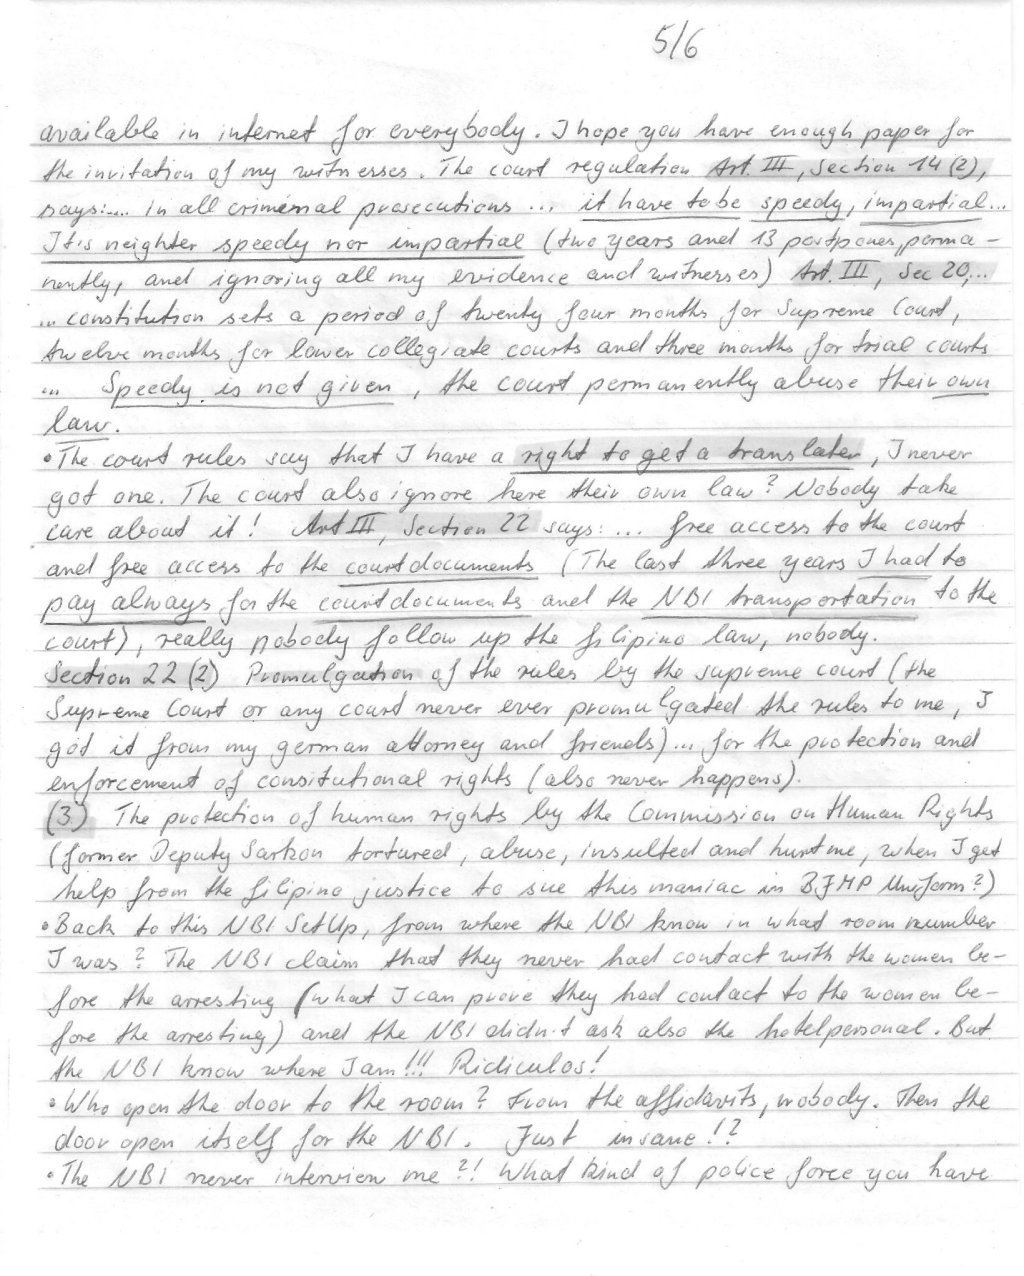 5/6
available in internet for everybody. I hope you have enough paper for
the invitation of my witnesses. The court regulation Art. III, Section 14 (2),
says:.... in all criminal prosecutions ... it have to be speedy, impartial...
It is neighter speedy nor impartial (two years and 13 postpones, perma-
nently, and ignoring all my evidence and witnesses) Art. III, Sec 20,...
... constitution sets a period of twenty four months for Supreme Court,
twelve months for lower collegiate courts and three months for trial courts
... Speedy is not given, the court permanently abuse their own
law.
• The court rules say that I have a right to get a translater, I never
got one. The court also ignore here their own law? Nobody take
care about it! Art III, Section 22 says:... free access to the court
and free access to the courtdocuments (The last three years I had to
pay always for the courtdocuments and the NBI transportation to the
court), really nobody follow up the filipino law, nobody.
Section 22 (2) Promulgation of the rules by the supreme court (the
Supreme Court or any court never ever promulgated the rules to me, I
got it from my german attorney and friends)... for the protection and
enforcement of consitutional rights (also never happens).
(3) The protection of human rights by the Commission on Human Rights
(former Deputy Sarkon tortured, abuse, insulted and hurt me, when I get
help from the filipino justice to sue this maniac in BJMP Uniform?)
• Back to this NBI SetUp, from where the NBI know in what room number
I was? The NBI claim that they never had contact with the women be-
fore the arresting (what I can prove they had contact to the women be-
fore the arresting) and the NBI didn't ask also the hotelpersonal. But
the NBI know where I am!!! Ridiculos!
• Who open the door to the room? From the affidavits, nobody. Then the
door open itself for the NBI. Just insane!?
• The NBI never interview me?! What kind of police force you have